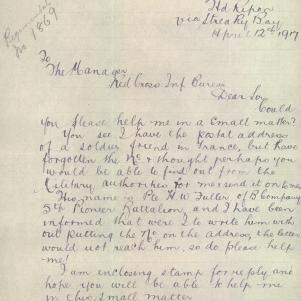 Regimental
No 1869
via Streaky Bay
April 12th 1917
To
The Manager
Red Cross Inf Bureau
Dear Sir,
Could
you please help me in a small matter?
You see I have the postal address
of a soldier friend in France, but have
forgotten the No. & thought perhaps you
would be able to find out from the
Military authorities for me & send it on to me.
His name is Pte H W Fuller of B Company
5th Pioneer Battalion, and I have been
informed that were I to write him with
out putting the No on the address, the letter
would not reach him, so do please help
me!
I am inclosing stamp for reply, and
hope you will be able to help me
in this small matter